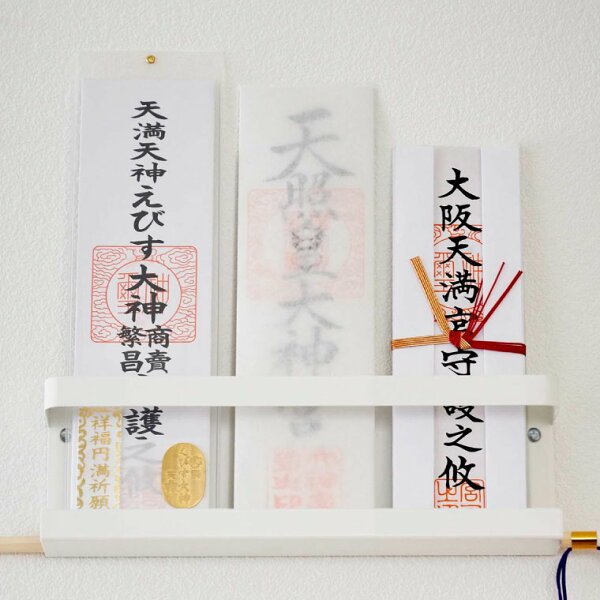 天満天神えびす大神
商賣
繁昌
護之
祥福円満祈願
天照皇大神宮
大阪天満宮守護之攸